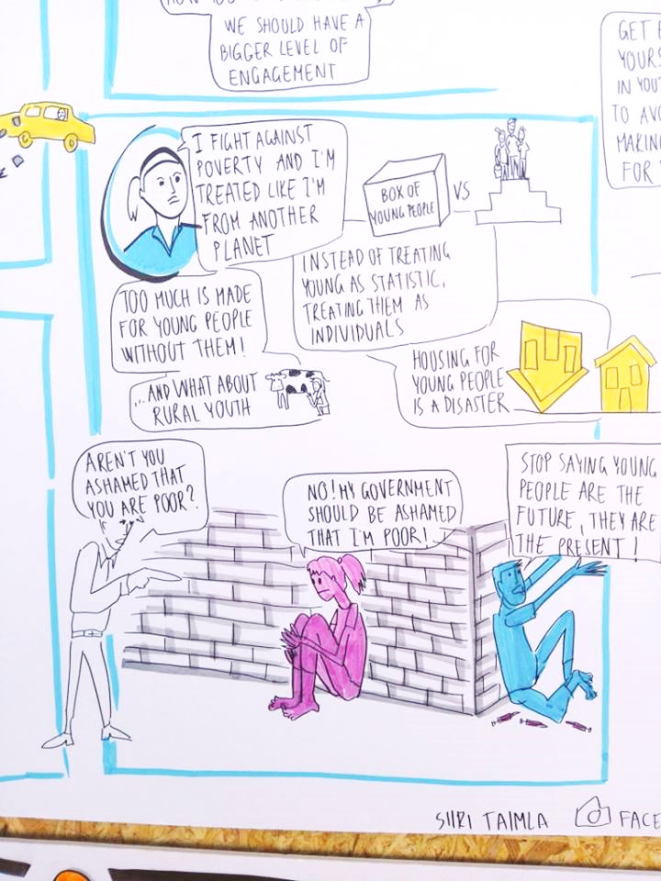 WE SHOULD HAVE A
BIGGER LEVEL OF
ENGAGEMENT
GET
IN
TO
MAKING
FOR
I FIGHT AGAINST
POVERTY AND I'M
TREATED LIKE I'M
FROM ANOTHER
PLANET
BOX OF
YOUNG PEOPLE
VS
INSTEAD OF TREATING
YOUNG AS STATISTIC,
TREATING THEM AS
INDIVIDUALS
TOO MUCH IS MADE
FOR YOUNG PEOPLE
WITHOUT THEM!
...AND WHAT ABOUT
RURAL YOUTH
HOUSING FOR
YOUNG PEOPLE
IS A DISASTER
AREN'T YOU
ASHAMED THAT
YOU ARE POOR?
NO! MY GOVERNMENT
SHOULD BE ASHAMED
THAT I'M POOR!
STOP SAYING YOUNG
PEOPLE ARE THE
FUTURE, THEY ARE
THE PRESENT!
SIIRI TAIMLA
FACE